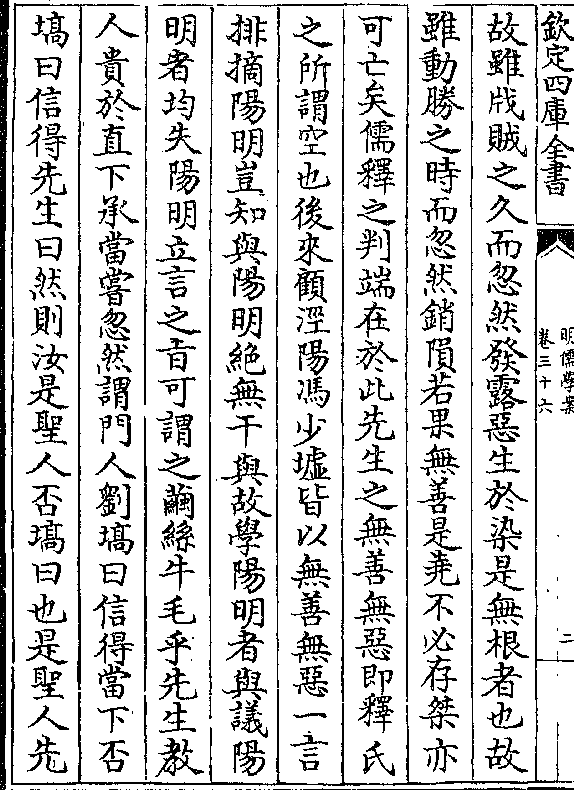 欽定四庫全書
明儒學案
卷三十六
二
故雖戕賊之久而忽然發露惡生於染是無根者也故
雖動勝之時而忽然銷隕若果無善是堯不必存桀亦
可亡矣儒釋之判端在於此先生之無善無惡即釋氏
之所謂空也後來顧涇陽馮少墟皆以無善無惡一言
排摘陽明豈知與陽明絶無干與故學陽明者與議陽
明者均失陽明立言之㫖可謂之繭絲牛毛乎先生教
人貴於直下承當嘗忽然謂門人劉塙曰信得當下否
塙曰信得先生曰然則汝是聖人否塙曰也是聖人先